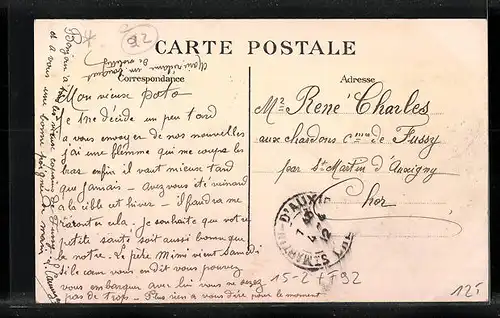 92
CARTE POSTALE
Correspondance
Adresse
Mon vieux poto
Je me décide un peu tard
a vous envoyer de mes nouvelles
j'ai une flemme qui me coupe les
bras enfin il vaut mieux tard
que jamais - Avez vous été
a la cible cet hiver - il faudra me
raconter cela. Je souhaite que votre
petite santé soit aussi bonne que
la notre. Le père Mimi vient samedi
si le cœur vous en dit vous pouvez
vous embarquer avec lui vous ne serez
pas de trop. Plus rien a vous dire pour le moment
Bonjour a
et a vous une bonne poignée de main
Mr René Charles
aux chardons Cne de Fussy
par St Martin d'Auxigny
Cher
ST MARTIN-D'AUX
15-2 1792
125